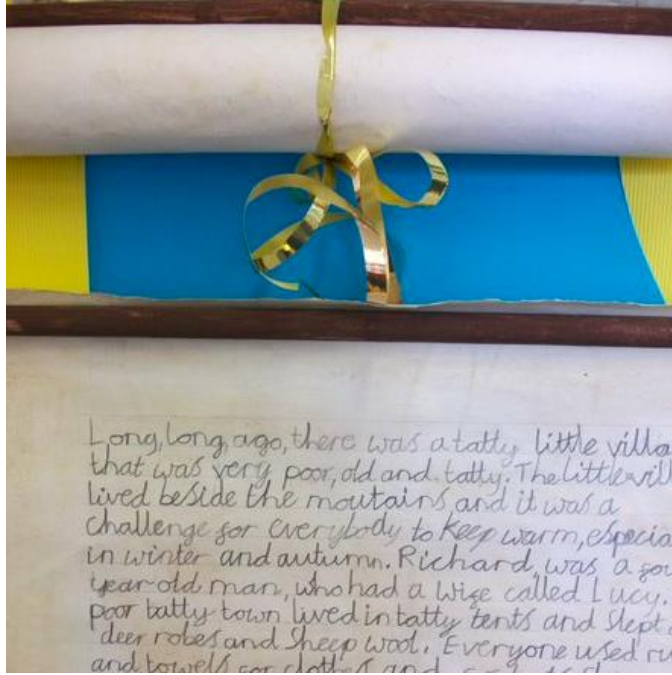 Long, long, ago, there was a tatty little villa
that was very poor, old and tatty. The little vill
lived beside the moutains, and it was a
challenge for everybody to keep warm, especia
in winter and autumn. Richard, was a fou
year-old man, who had a wife called Lucy.
poor tatty town lived in tatty tents and slept
deer robes and sheep wool. Everyone used ru
and towels for clothes and